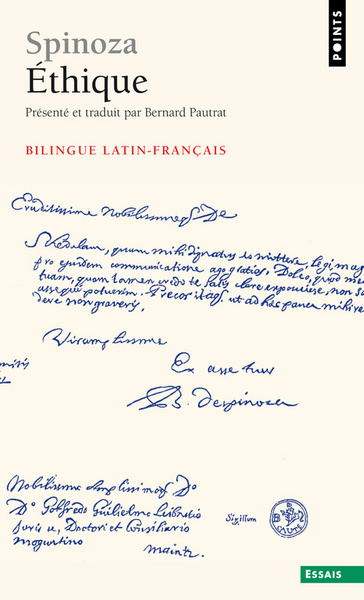 POINTS
Spinoza
Éthique
Présenté et traduit par Bernard Pautrat
BILINGUE LATIN-FRANÇAIS
Eruditissime Nobilissimeq; De
Schedulam, quam mihi dignatus es mittere, legi mag
pro ejusdem communicatione ago gratias. Doleo, quod me
tuam, quam tamen credo te satis clare exposuisse, non
assequi potuerim. Precor itaq; ut ad haec pauca mihi re
dere non graveris.
Vir amplissime
Ex asse tuus
B. despinoza
Nobilissimo Amplissimoq; Do
Do Gotfredo Guilielmo Leibnitio
Juris u, Doctori et Consiliario
Moguntino
Maintz
Sigillum
B D S
CAUTE
ESSAIS